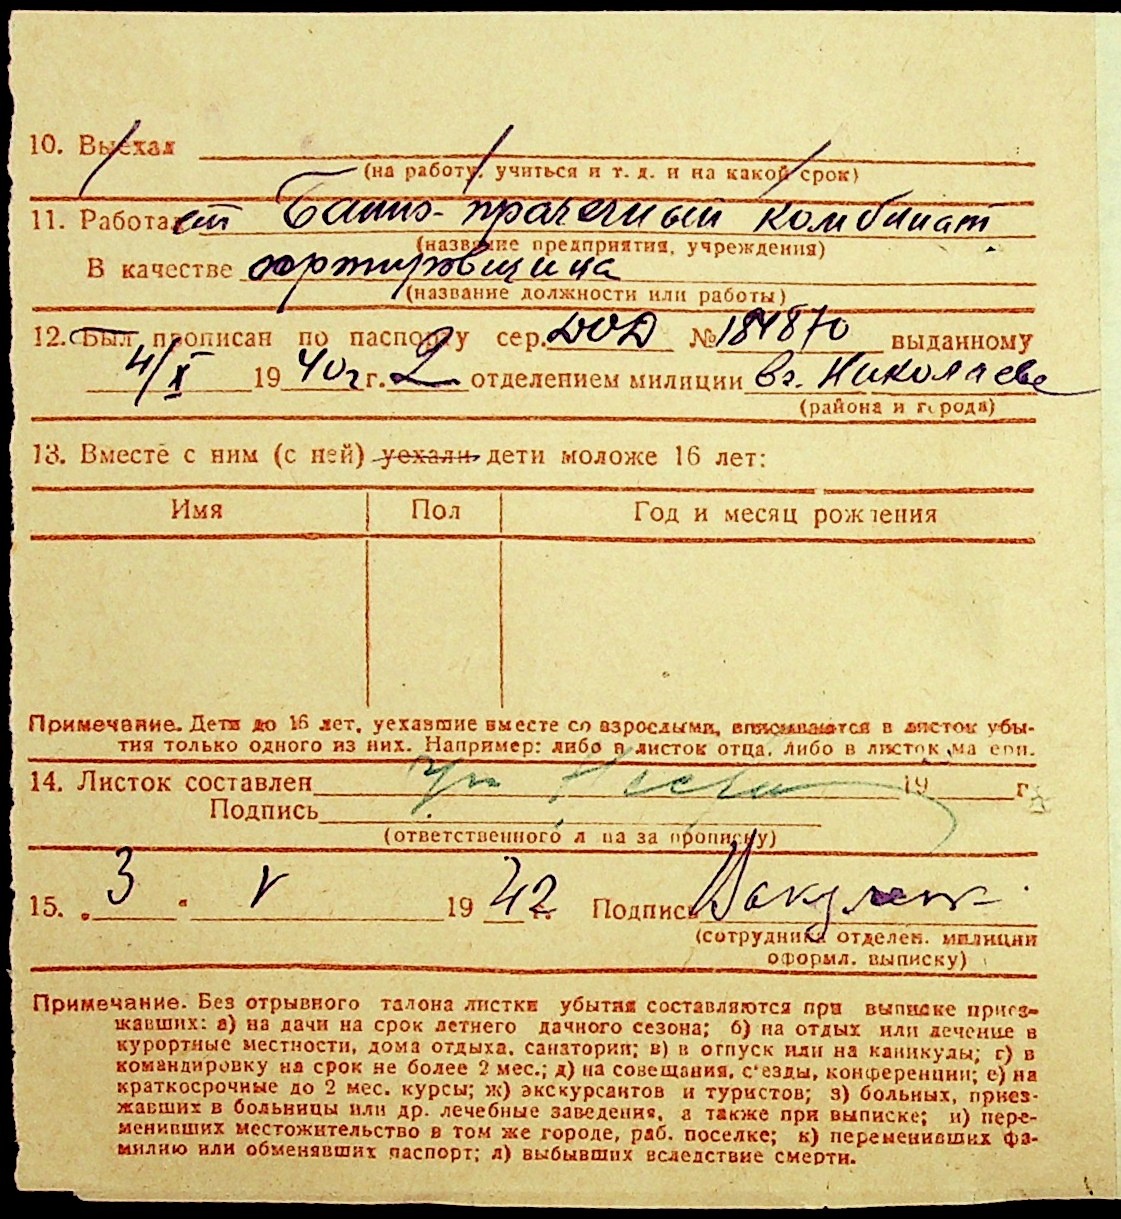 10. Выехал
(на работу, учиться и т. д. и на какой срок)
11. Работает Банно-прачечный комбинат
(название предприятия, учреждения)
В качестве сортировщица
(название должности или работы)
12. Был прописан по паспорту сер. № 184870 выданному
4/X 1940г г. 2 отделением милиции в г. Николаеве
(района и города)
13. Вместе с ним (с ней) уехали дети моложе 16 лет:
Имя Пол Год и месяц рождения
Примечание. Дети до 16 лет, уехавшие вместе со взрослыми, вписываются в листок убы-
тия только одного из них. Например: либо в листок отца, либо в листок ма ери.
14. Листок составлен 19 г.
Подпись
(ответственного л ца за прописку)
15. „3" V 1942 Подпись
(сотрудника отделен. милиции
оформл. выписку)
Примечание. Без отрывного талона листки убытия составляются при выписке приез-
жавших: а) на дачи на срок летнего дачного сезона; б) на отдых или лечение в
курортные местности, дома отдыха, санатории; в) в отпуск или на каникулы; г) в
командировку на срок не более 2 мес.; д) на совещания, с'езды, конференции; е) на
краткосрочные до 2 мес. курсы; ж) экскурсантов и туристов; з) больных, приез-
жавших в больницы или др. лечебные заведения, а также при выписке; и) пере-
менивших местожительство в том же городе, раб. поселке; к) переменивших фа-
милию или обменявших паспорт; л) выбывших вследствие смерти.